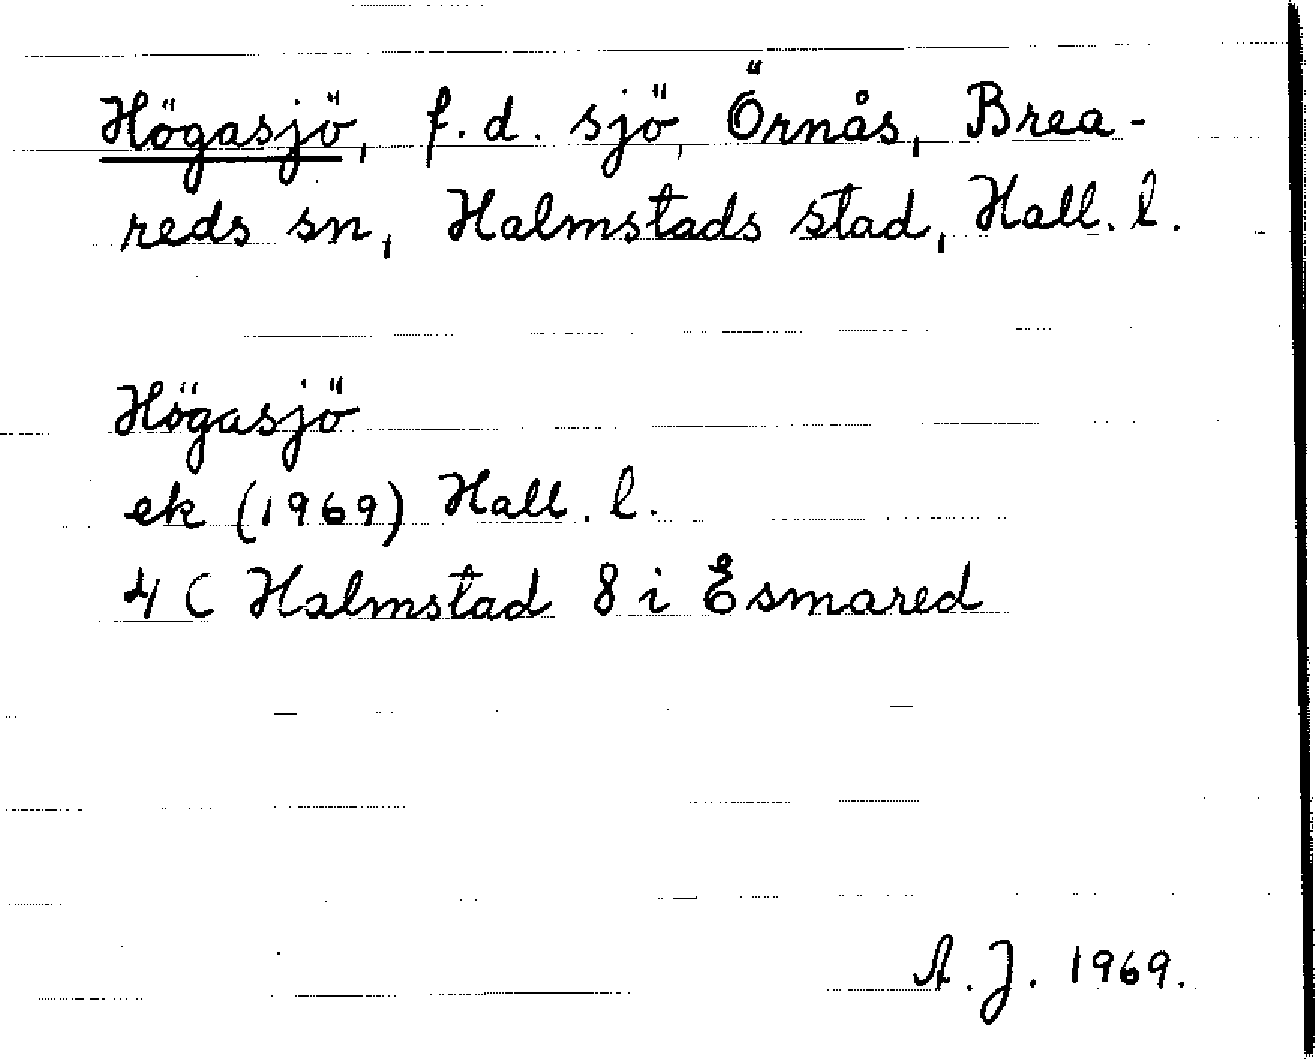 Högasjö, f.d. sjö, Örnås, Brea-
reds sn, Halmstads stad, Hall. l.
Högasjö
ek (1969) Hall. l.
4 C Halmstad 8 i Esmared
A. J. 1969.